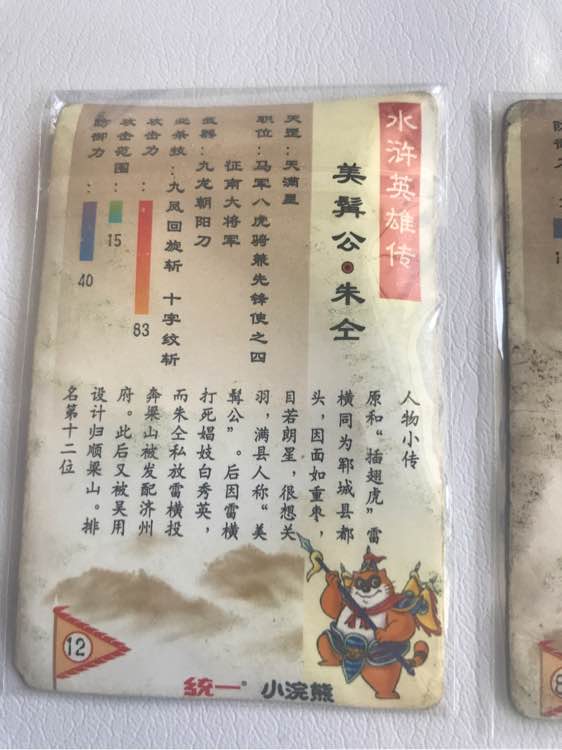 水浒英雄传
美髯公·朱仝
天罡：天满星
职位：马军八虎骑兼先锋使之四
征南大将军
武器：九龙朝阳刀
必杀技：九凤回旋斩 十字纹斩
攻击力：
83
攻击范围：
15
防御力：
40
人物小传
原和“插翅虎”雷
横同为郓城县都
头，因面如重枣，
目若朗星，很想关
羽，满县人称“美
髯公”。后因雷横
打死娼妓白秀英，
而朱仝私放雷横投
奔梁山被发配济州
府。此后又被吴用
设计归顺梁山。排
名第十二位
12
統一® 小浣熊